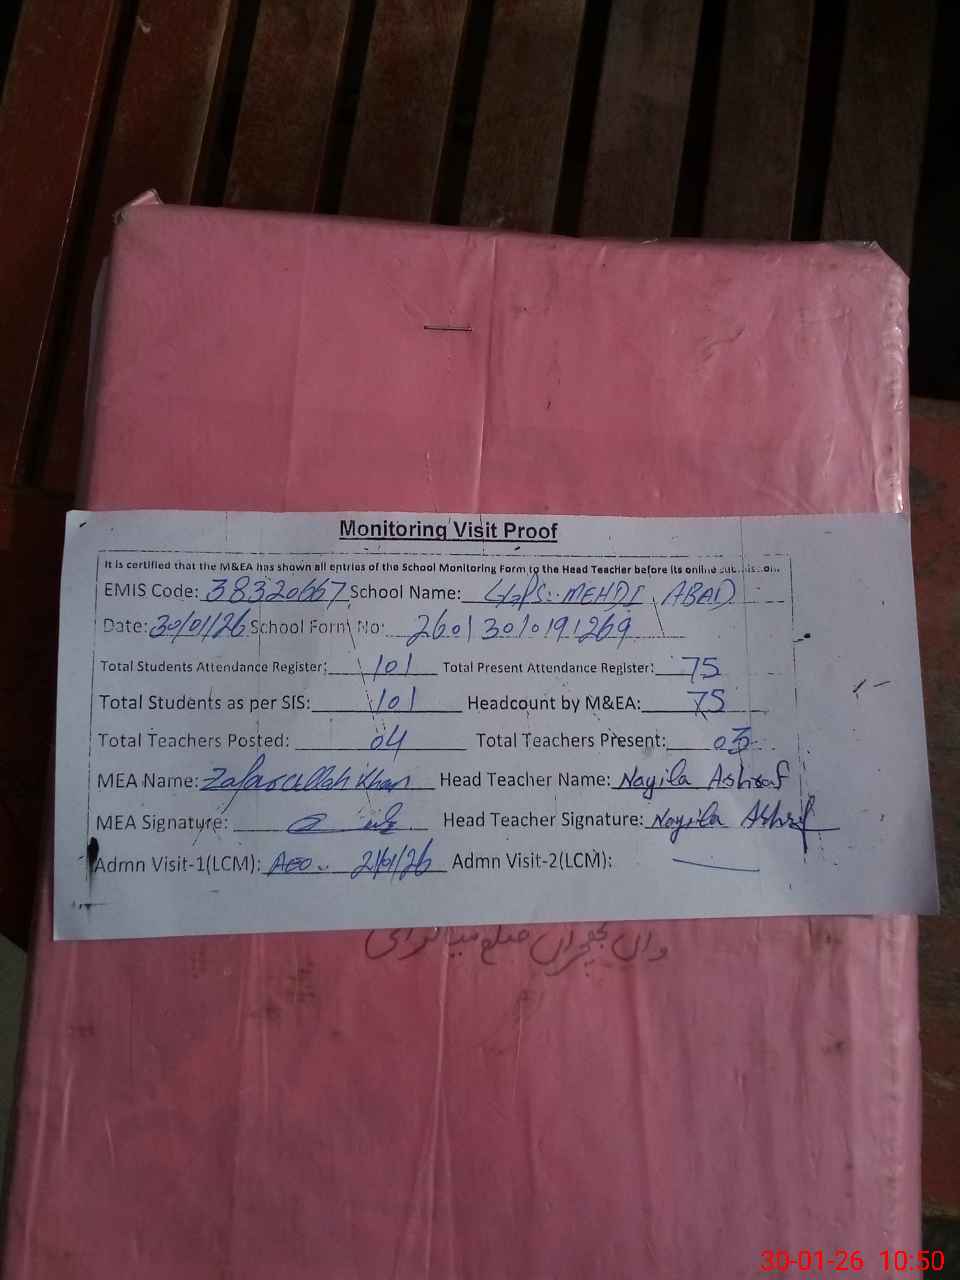 Monitoring Visit Proof
It is certified that the M&EA has shown all entries of the School Monitoring Form to the Head Teacher before its online submission.
EMIS Code: 38320667 School Name: GGPS: MEHDI ABAD
Date: 30/01/26 School Form No: 26013010191269
Total Students Attendance Register: 101 Total Present Attendance Register: 75
Total Students as per SIS: 101 Headcount by M&EA: 75
Total Teachers Posted: 04 Total Teachers Present: 03
MEA Name: Zafarullah Khan Head Teacher Name: Nayila Ashraf
MEA Signature: Head Teacher Signature: Nayila Ashraf
Admn Visit-1(LCM): AEO 21/01/26 Admn Visit-2(LCM):
واں بھچراں ضلع میانوالی
30-01-26 10:50